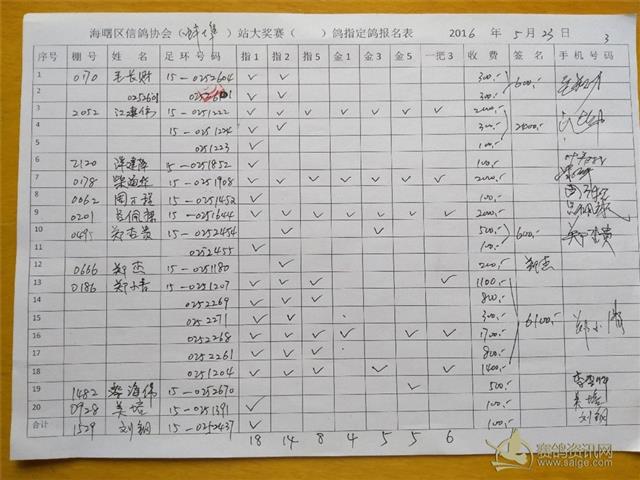 海曙区信鸽协会( )站大奖赛( )鸽指定鸽报名表 2016 年 5 月 23 日 3
序号 棚号 姓名 足环号码 指1 指2 指5 金1 金5 一把3 收费 签名 手机号码
1 0170 毛长财 15-0252604 ✓ ✓ 300,-
2 0252601 ✓ ✓ 300,- 600,-
3 2052 15-0251222 ✓ ✓ ✓ ✓ ✓ ✓ ✓ 2000,-
4 15-0251224 ✓ ✓ 300,- 2400,-
5 0251223 ✓ 100,-
6 2120 15-0251852 ✓ 100,-
7 0178 15-0251908 ✓ ✓ ✓ ✓ ✓ ✓ ✓ 2000,-
8 0062 15-0251452 ✓ 100,-
9 0201 15-0251644 ✓ ✓ ✓ ✓ ✓ ✓ ✓ 2000,-
10 0495 郑杏贵 15-0252454 ✓ ✓ 500,- 600,-
11 0252455 ✓ 100,-
12 0666 郑杰 15-0251180 ✓ 200,- 郑杰
13 0186 郑小青 15-0251207 ✓ ✓ ✓ ✓ 1100,-
14 0252269 ✓ ✓ ✓ 800,-
15 0252271 ✓ ✓ 300,- 6100,-
16 0252268 ✓ ✓ ✓ ✓ ✓ ✓ 1700,-
17 0252261 ✓ ✓ ✓ 800,-
18 0251204 ✓ ✓ ✓ ✓ ✓ 1400,-
19 1482 15-0252670 ✓ 500,-
20 0928 吴培 15-0251391 ✓ 100,- 吴培
合计 1529 刘钢 15-0252437 ✓ 100,- 刘钢
18 14 8 4 5 5 6
赛鸽资讯网
www.saige.com